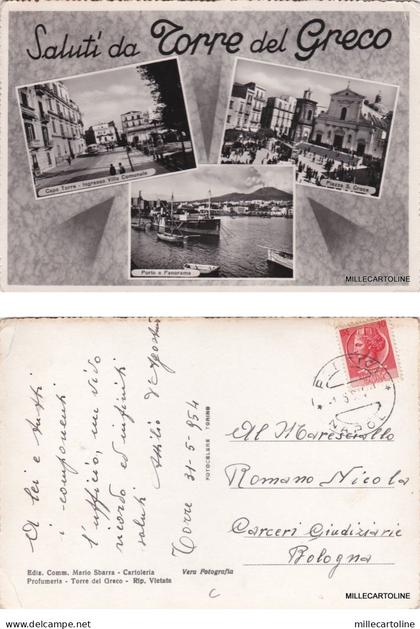 Saluti da Torre del Greco
Capo Torre - Ingresso Villa Comunale
Piazza S. Croce
Porto e Panorama
MILLECARTOLINE
A lei e tutti
i componenti
l'ufficio, un vivo
ricordo ed infiniti
saluti
Attilio D'Agostino
Torre 31-5-954
FOTOCELERE TORINO
NAPOLI
Al Maresciallo
Romano Nicola
Carceri Giudiziarie
Bologna
Ediz. Comm. Mario Sbarra - Cartoleria
Profumeria - Torre del Greco - Rip. Vietata
Vera Fotografia
C
MILLECARTOLINE
Bienvenue sur
millecartoline